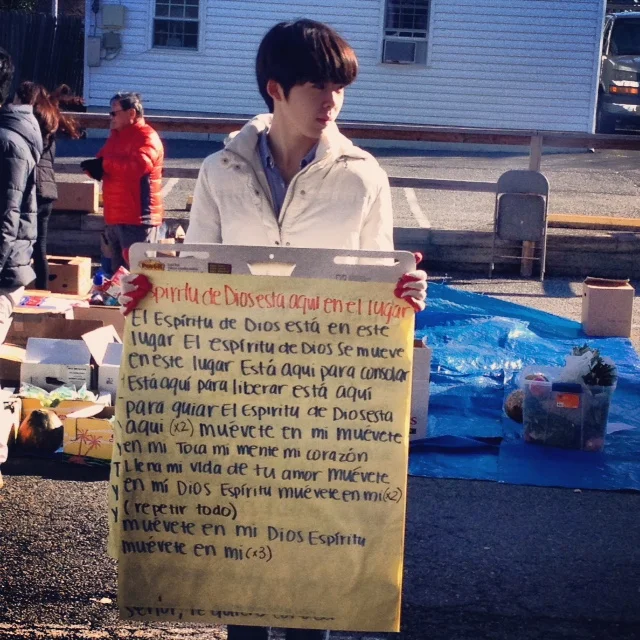 Espiritu de Dios esta aqui en el lugar
El Espíritu de Dios está en este
lugar El espíritu de Dios Se mueve
en este lugar Está aqui para consolar
Está aquí para liberar está aquí
para guiar El Espiritu de Dios esta
aqui (x2) muévete en mi muévete
en mi Toca mi mente mi corazón
Llena mi vida de tu amor muévete
en mí Dios Espíritu muévete en mi (x2)
(repetir todo)
muévete en mi Dios Espíritu
muévete en mi (x3)